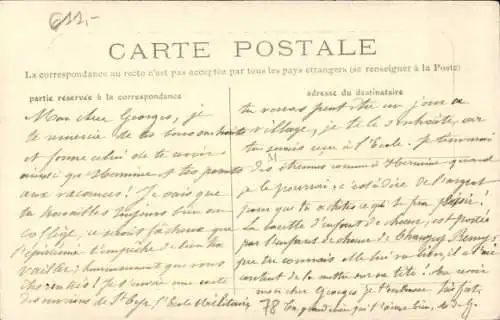 611.-
CARTE POSTALE
La correspondance au recto n'est pas acceptée par tous les pays étrangers (se renseigner à la Poste)
partie réservée à la correspondance
Mon cher Georges, je
te remercie de tes bons souhaits
et forme celui de te
ainsi que tes parents
aux vacances! Je sais que
tu travailles toujours bien au
collège, ce serait fâcheux que
l'épidémie t'empêche de bien tra
vailler; heureusement que vous
Je t'envoie une carte
des environs de St Cyr, l'Ecole Militaire
adresse du destinataire
tu verras peut être un jour ce
village, je te le souhaite, car
tu seras à l'Ecole. Je t'enverrai
M
des étrennes comme à quand
je le pourrai, c'est à dire de l'argent
pour que tu achètes ce qui te fera plaisir!
La calotte d'enfant de chœur, est portée
par l'enfant de chœur de Remy
que tu connais elle lui va bien, il est
content de la mettre sur sa tête! Au revoir
mon cher Georges je t'embrasse
78 Ton grand qui t'aime bien,